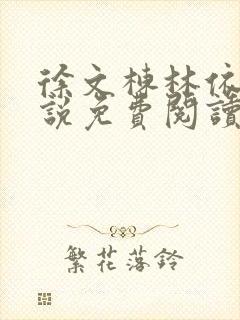 徐文棟林依
說免費閱讀
繁花落鈴